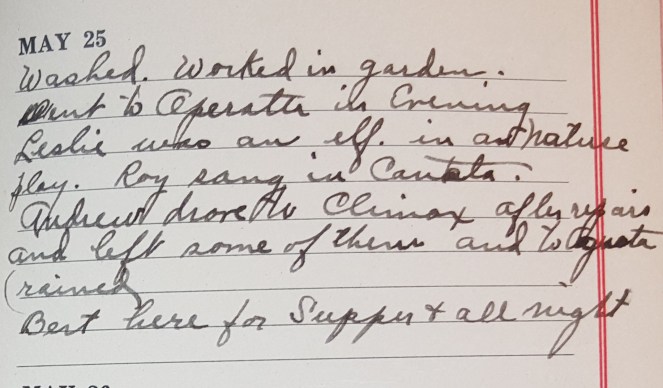 MAY 25
Washed. Worked in garden.
Went to Operatta in Evening
Leslie was an elf. in a Nature
play. Roy sang in Cantata.
Andrew drove to Climax after repairs
and left some of them and to
(rained)
Bert here for Supper & all night